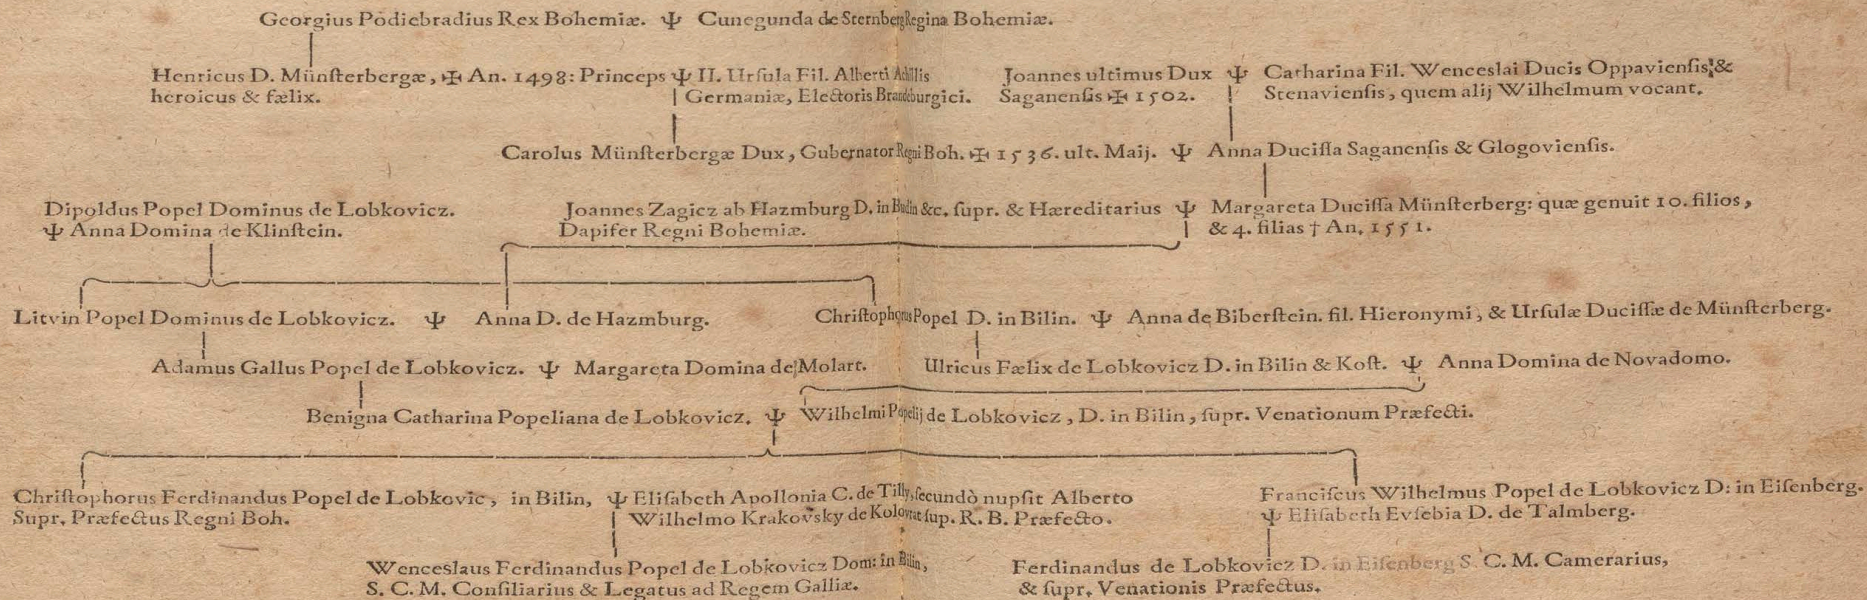 Georgius Podiebradius Rex Bohemiæ. Ψ Cunegunda de Sternberg Regina Bohemiæ.
Henricus D. Münſterbergæ, ✠ An. 1498: Princeps Ψ II. Urſula Fil. Alberti Achillis
heroicus & fælix.
Germaniæ, Electoris Brandeburgici.
Joannes ultimus Dux Ψ Catharina Fil. Wenceslai Ducis Oppavienſis, &
Saganenſis ✠ 1502.
Stenavienſis, quem alij Wilhelmum vocant.
Carolus Münſterbergæ Dux, Gubernator Regni Boh. ✠ 1536. ult. Maij. Ψ Anna Duciſſa Saganenſis & Glogovienſis.
Dipoldus Popel Dominus de Lobkovicz.
Ψ Anna Domina de Klinſtein.
Joannes Zagicz ab Hazmburg D. in Budin &c. ſupr. & Hæreditarius Ψ Margareta Duciſſa Münſterberg: quæ genuit 10. filios,
Dapifer Regni Bohemiæ.
& 4. filias † An. 1551.
Litvin Popel Dominus de Lobkovicz. Ψ Anna D. de Hazmburg.
Chriſtophorus Popel D. in Bilin. Ψ Anna de Biberſtein. fil. Hieronymi, & Urſulæ Duciſſæ de Münſterberg.
Adamus Gallus Popel de Lobkovicz. Ψ Margareta Domina de Molart.
Ulricus Fælix de Lobkovicz D. in Bilin & Koſt. Ψ Anna Domina de Novadomo.
Benigna Catharina Popeliana de Lobkovicz. Ψ Wilhelmi Popelij de Lobkovicz, D. in Bilin, ſupr. Venationum Præfecti.
Chriſtophorus Ferdinandus Popel de Lobkovic, in Bilin, Ψ Eliſabeth Apollonia C. de Tilly, ſecundò nupſit Alberto
Supr. Præfectus Regni Boh.
Wilhelmo Krakovsky de Kolovrat ſup. R. B. Præfecto.
Franciſcus Wilhelmus Popel de Lobkovicz D: in Eiſenberg.
Ψ Eliſabeth Evſebia D. de Talmberg.
Wenceslaus Ferdinandus Popel de Lobkovicz Dom: in Bilin,
S. C. M. Conſiliarius & Legatus ad Regem Galliæ.
Ferdinandus de Lobkovicz D. in Eiſenberg S. C. M. Camerarius,
& ſupr. Venationis Præfectus.